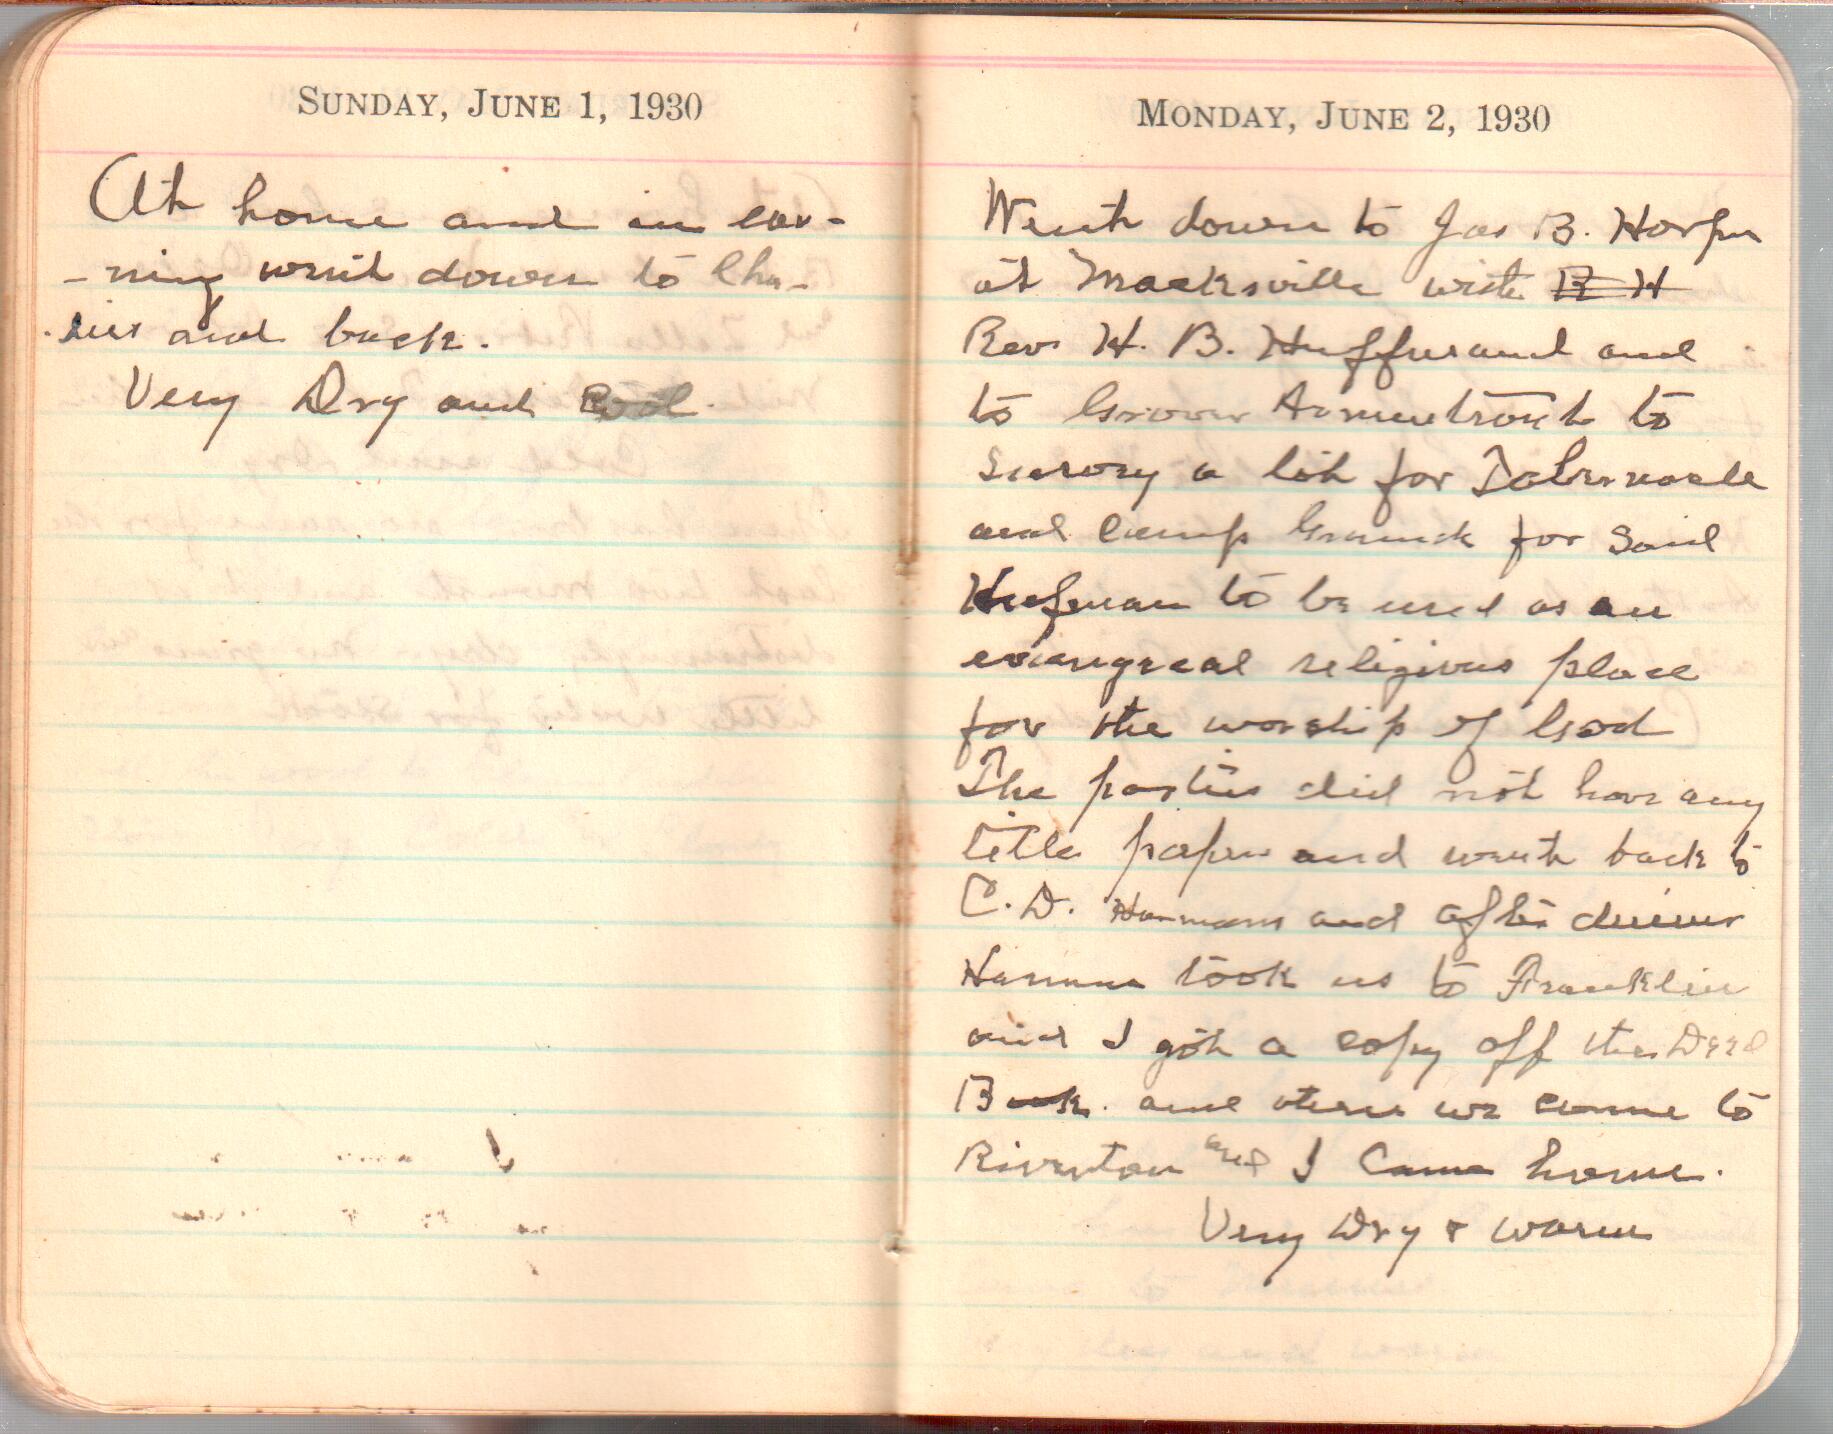 SUNDAY, JUNE 1, 1930
At home and in eav-
-ning went down to Cha-
.lies and back.
Very Dry and Cool.
MONDAY, JUNE 2, 1930
Went down to Jas B. Harper
at Macksville with B H
Rev. H. B. Huffman and
to Grover Armentrout to
Survey a lot for Tabernacle
and Camp Ground for Said
Hufman to be used as an
religious place
for the worship of God
The parties did not have any
title paper and went back to
C. D. Harmans and after dinner
Harman took us to Franklin
and I got a copy off the Deed
Book. and we came to
Riverton and I Came home.
Very Dry & warm